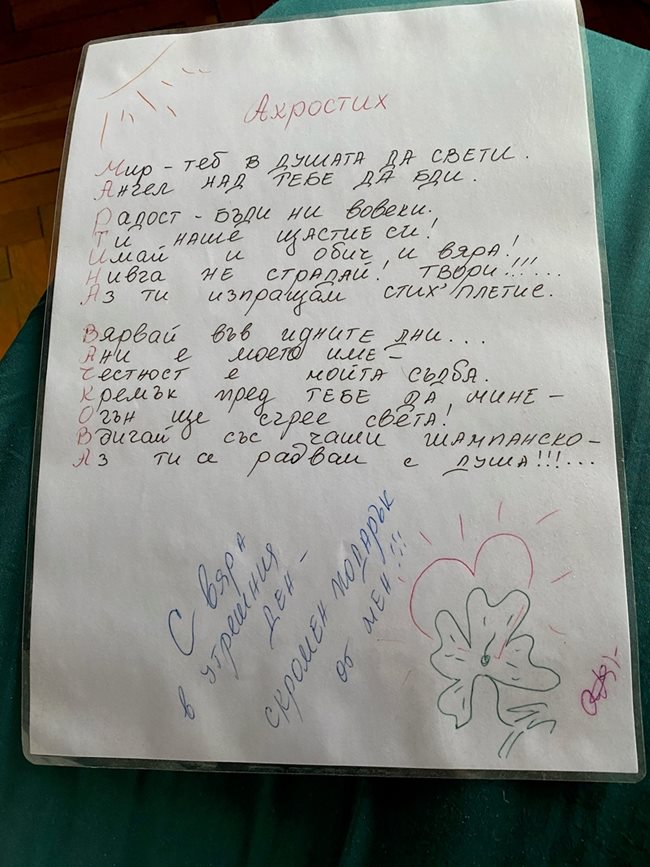 Акростих
Мир - теб в душата да свети.
Ангел над тебе да бди.
Радост - бъди ни вовеки.
Ти наше щастие си!
Имай и обич и вяра!
Нивга не страдай! Твори!!!...
Аз ти изпращам стих' плетис.
Вярвай във идните дни...
Ани е моето име -
Честност е мойта съдба.
Кремък пред тебе да мине -
Огън ще сгрее света!
Вдигай със чаши шампанско -
Аз ти се радвам с душа!!!...
С вяра
в утрешния
ден -
скромен подарък
от мен!!!